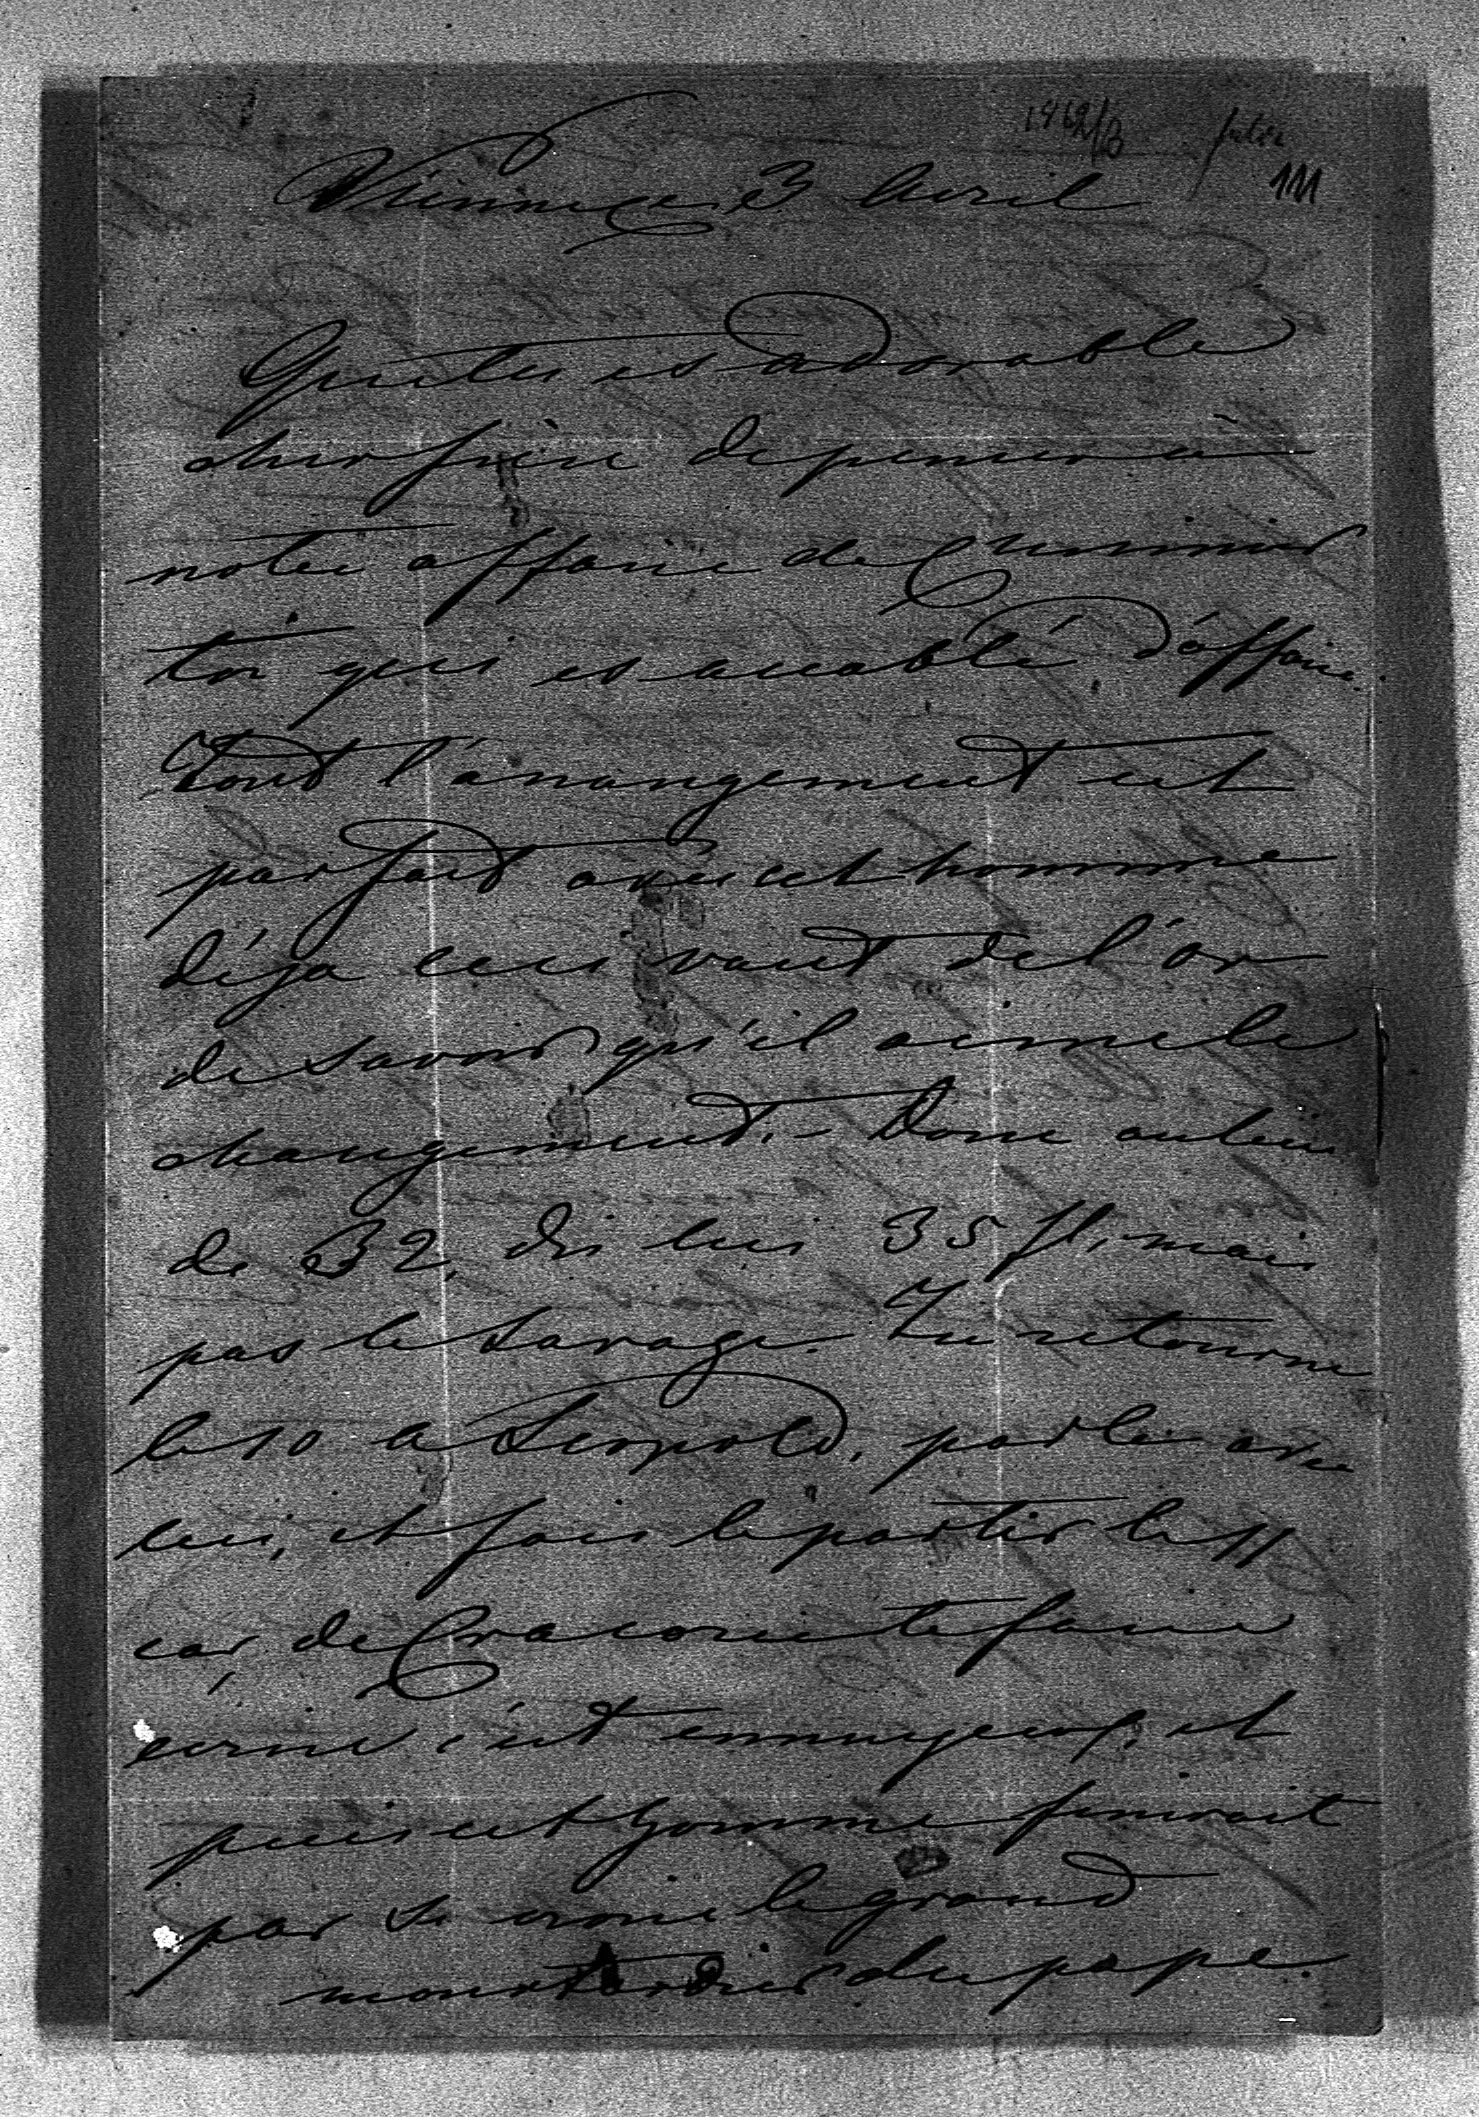 111
Vienne ce 3 Avril
Que tu es adorable
cher frère de penser à
notre affaire de
toi qui es accablé d'affaire.
Tout l'arrangement est
parfait avec cet homme
déja ceci vaut de l'or
de savoir qu'il aime le
changement. – Donc au lieu
de 32, dis lui 35 fl, mais
pas le lavage. Tu retourne
le 10 a Léopold, parle avec
lui, et fais le partir le 11
car de Cracovie te faire
ecrire c'est ennuyeux, et
puis cet homme finirait
par se croire le grand
moutardier du pape.